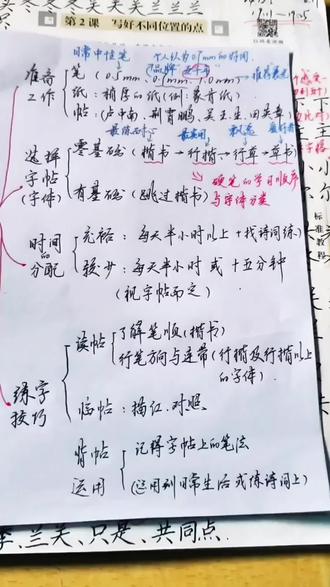 第2课 写好不同位置的点
日常中性笔 个人认为0.7mm的好用
准备工作
笔(0.5mm、0.7mm、1.0mm)
纸:稍厚的纸(例:蒙肯纸)
帖:(卢中南、荆霄鹏、吴玉生、田英章)
选择字帖(字体)
零基础(楷书→行楷→行草→草书)
硬笔的学习顺序与字体方案
有基础(跳过楷书)
时间的分配
充裕:每天半小时以上+找诗词练
较少:每天半小时或十五分钟
(视字帖而定)
练字技巧
读帖
了解笔顺(楷书)
行笔方向与连带(行楷及行楷以上的字体)
临帖:描红.对照.
背帖
记得字帖上的笔法
运用
(运用到日常生活或练诗词上)
兰关、只是、共同点.
标准教程